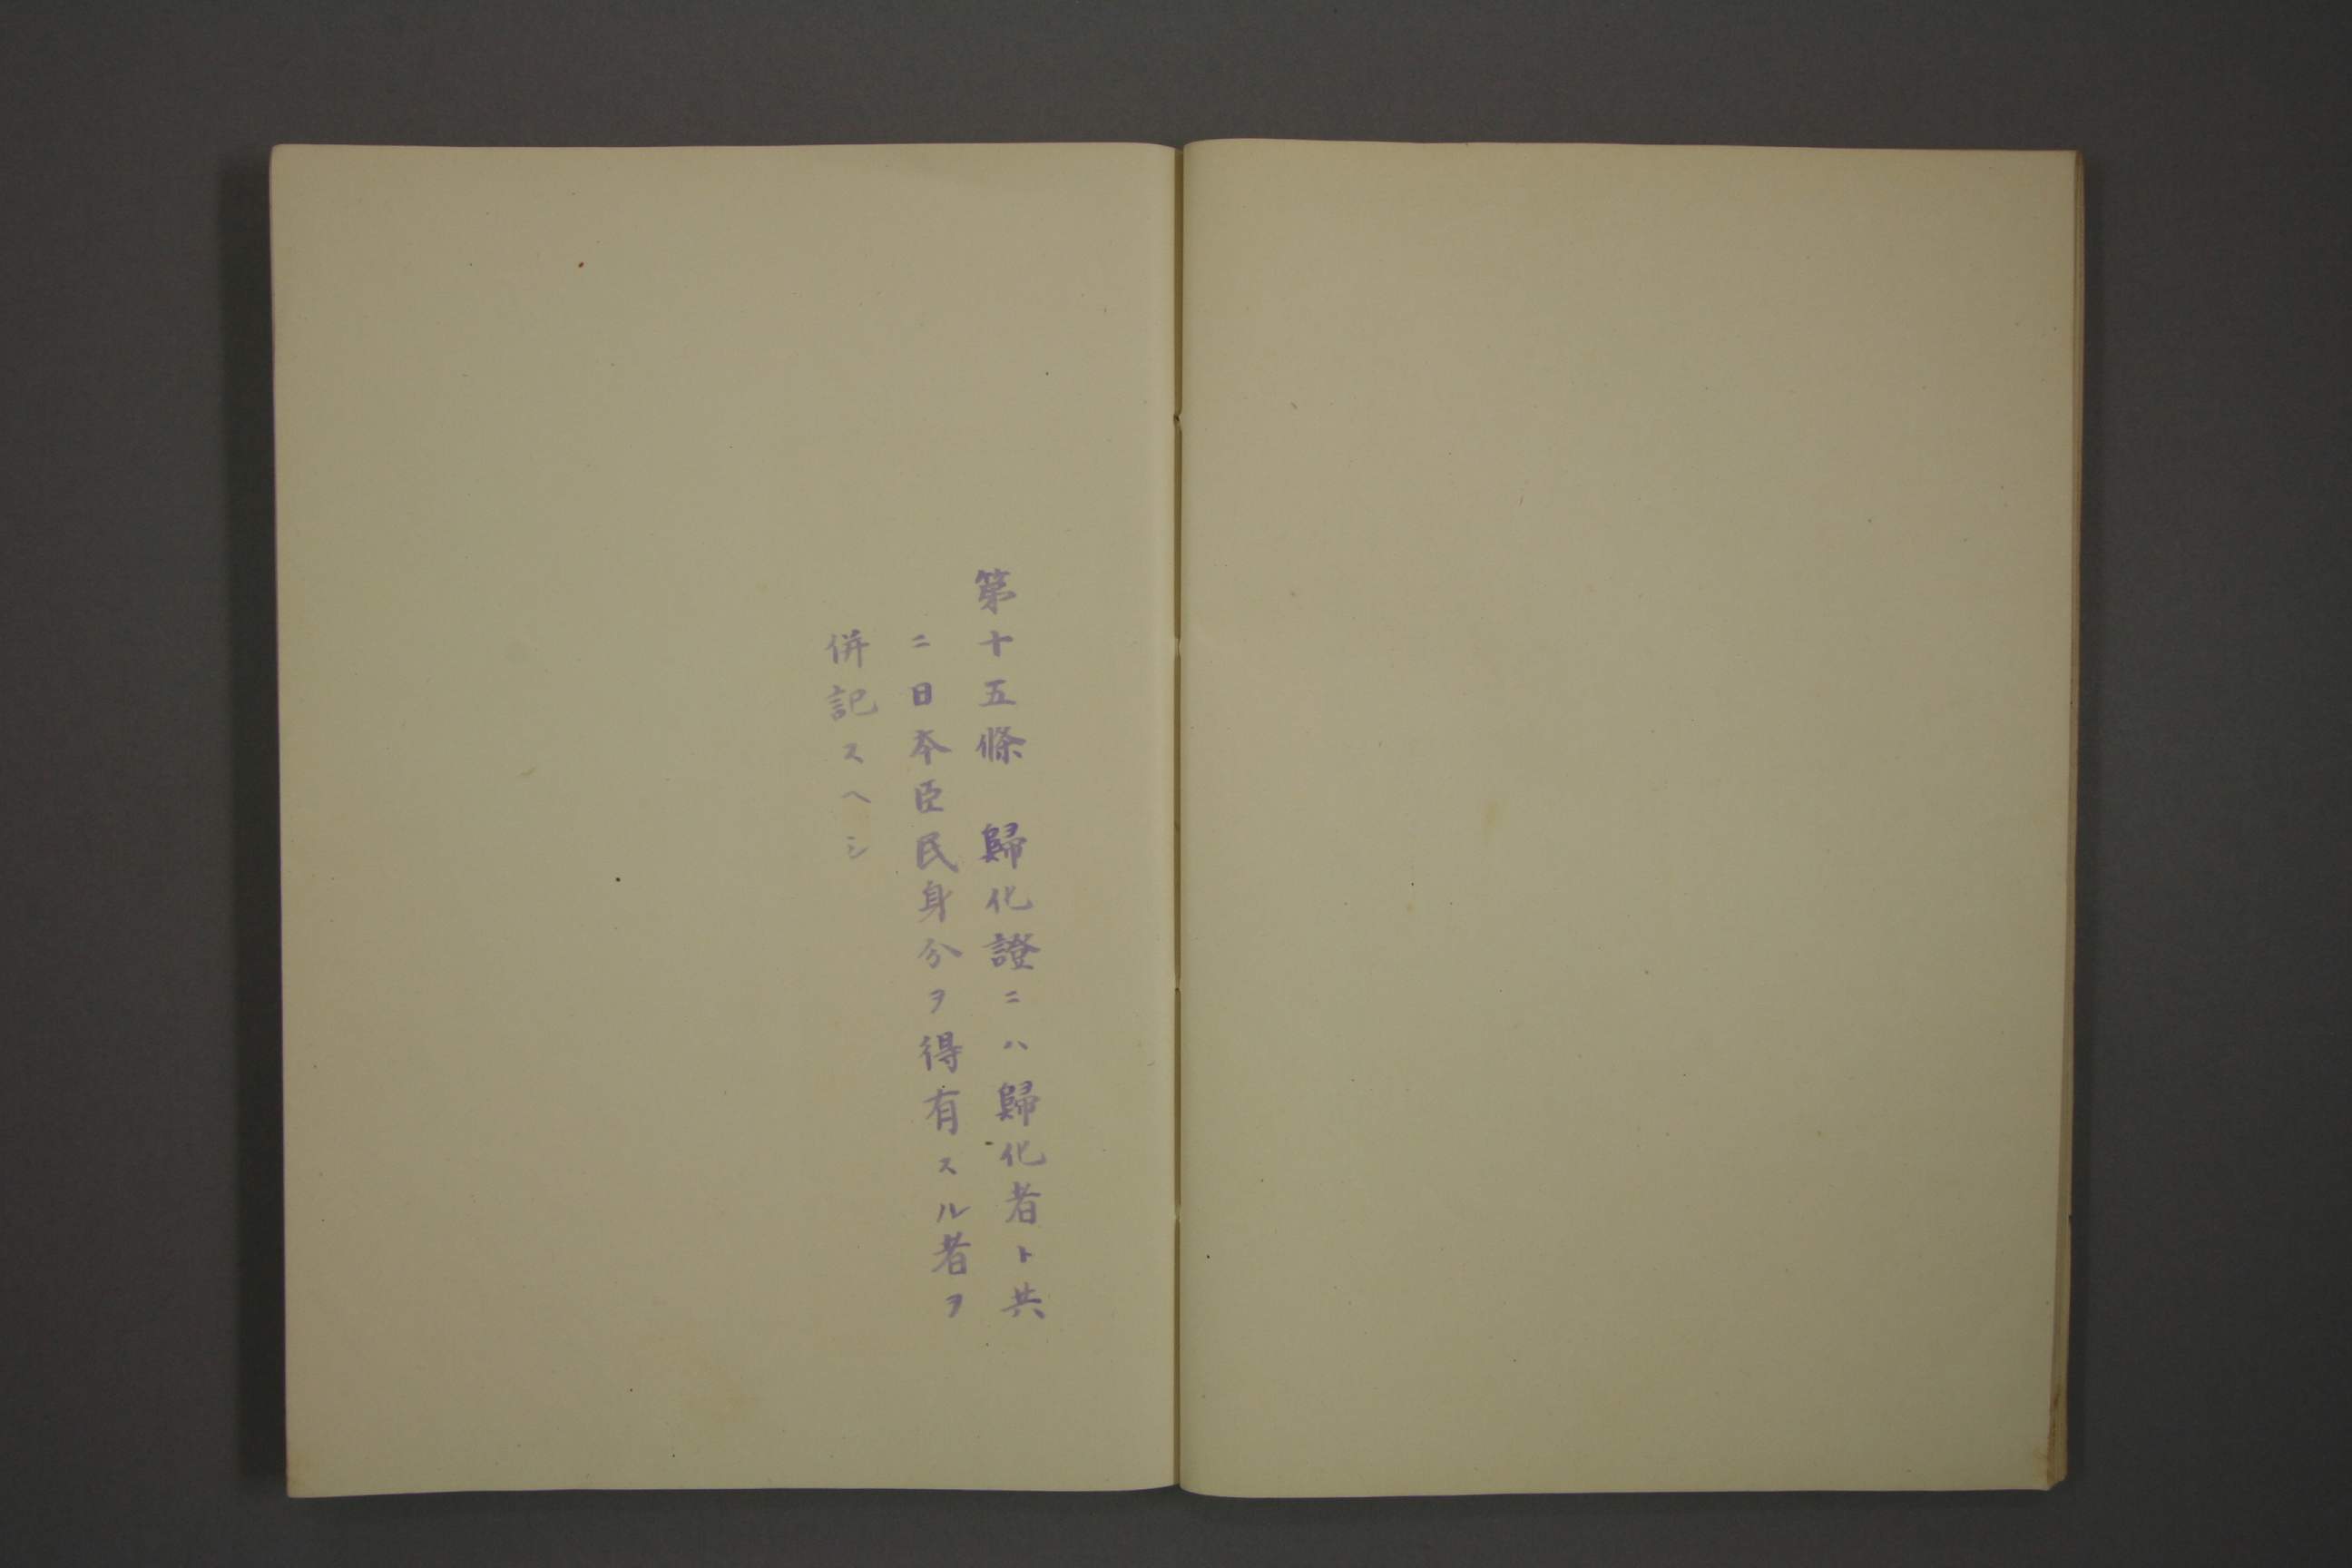 第十五條　歸化證ニハ歸化者ト共
ニ日本臣民身分ヲ得有スル者ヲ
併記スヘシ